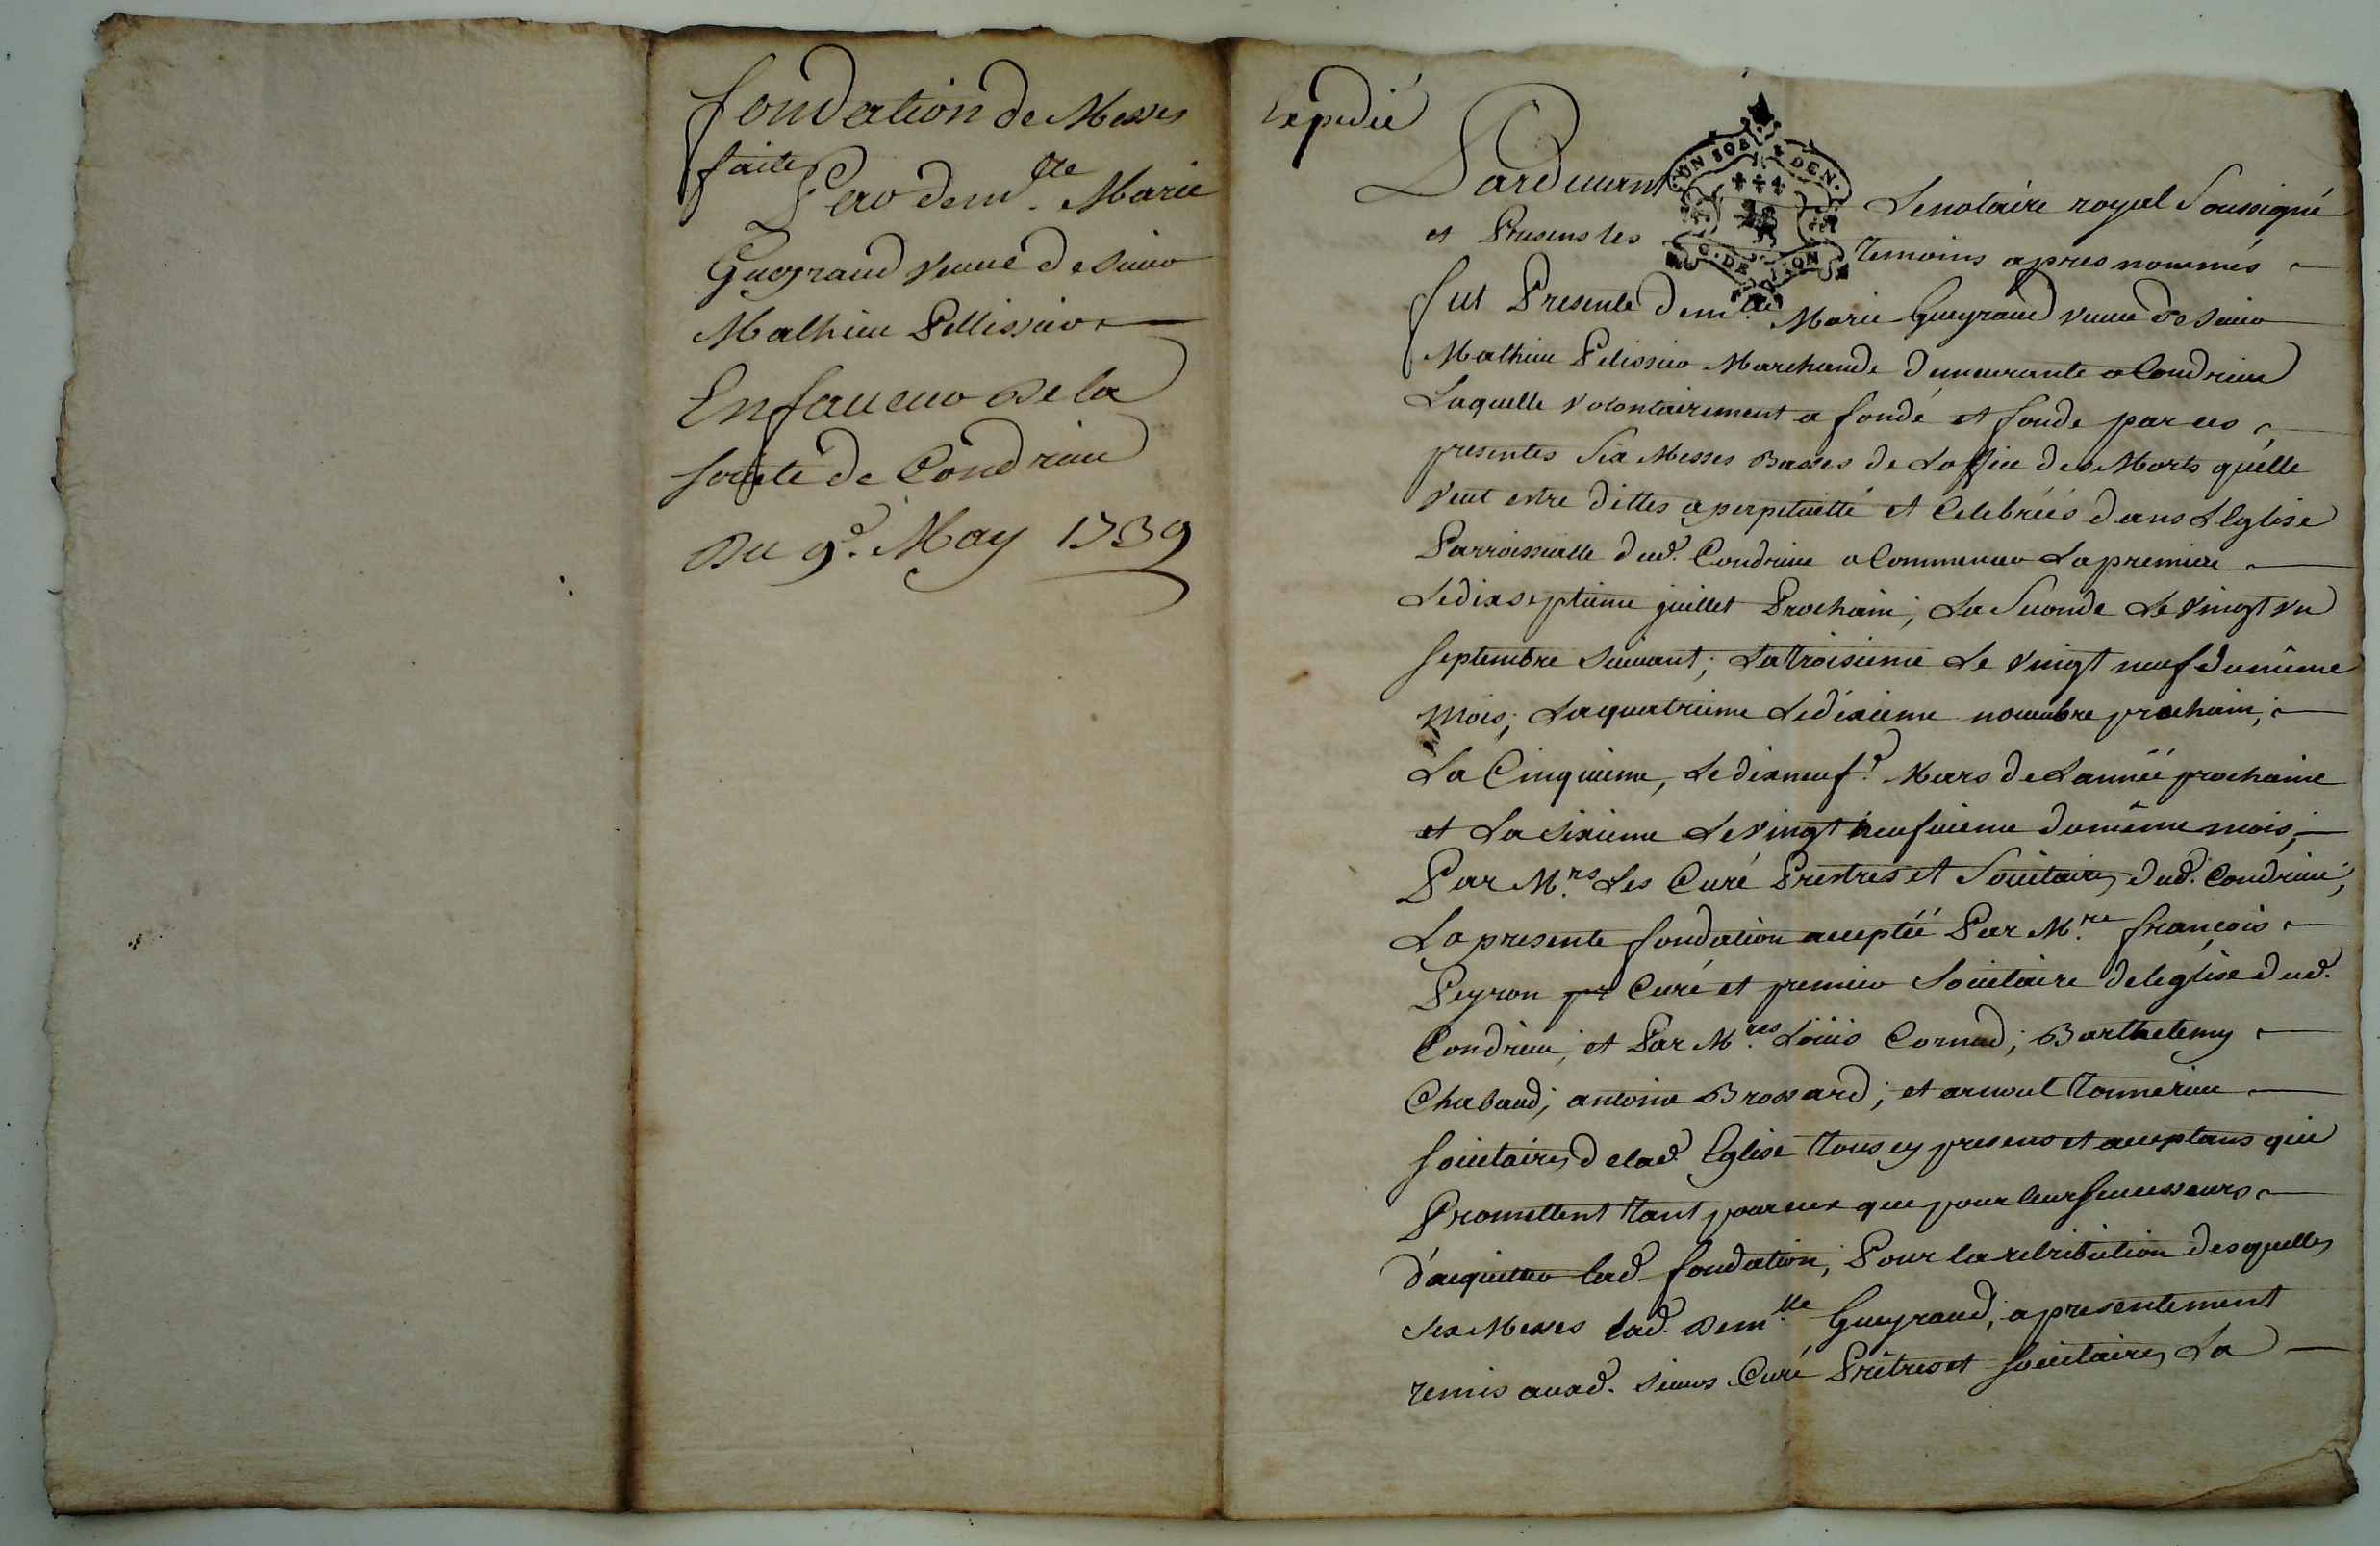 fondation de Messes
faite
Par dem.lle Marie
Gueyraud veuve de sieur
Mathieu Pellissier
En faueur de la
societé de Condrieu
Du 9.e May 1739
Expedié
Pardevant Le notaire royal Soussigné
UN SOL * DEN.
G. DE LION
et Presens les temoins apres nommés
fut Presente dem.lle Marie Gueyraud veuve de sieur
Mathieu Pelissier Marchande demeurante a Condrieu
Laquelle volontairement a fondé et fonde par ces
presentes Six Messes Basses de Loffice des Morts qu'elle
veut estre dittes a perpetuitté et Celebréés dans L'Eglise
Parroissialle dud. Condrieu a Commencer La premiere
Le dixseptieme juillet Prochain; La Seconde Le vingt vn
septembre suivant; La troisieme Le vingt neuf du même
mois; La quatrieme Le dixieme nouembre prochain;
La Cinquieme, Le dixneuf.e Mars de L'année prochaine
et La sixieme Le vingt neufuieme du même mois;
Par M.rs Les Curé Prestres et Societaires dud. Condrieu;
La presente fondation acceptéé Par M.re françois
Peyron Curé et premier Societaire de leglise dud.
Condrieu; et Par M.res Loüis Cornud; Barthelemy
Chabaud; antoine Brossard; et arnoul Tonnerieu
societaires de lad. Eglise Tous cy presens et acceptans qui
Promettent tant pour eux que pour leurs successeurs
d'acquitter lad. fondation; Pour la retribution desquelles
six Messes lad. Dem.lle Gueyraud; a presentement
remis auxd. sieurs Curé Prêtres et societaires La